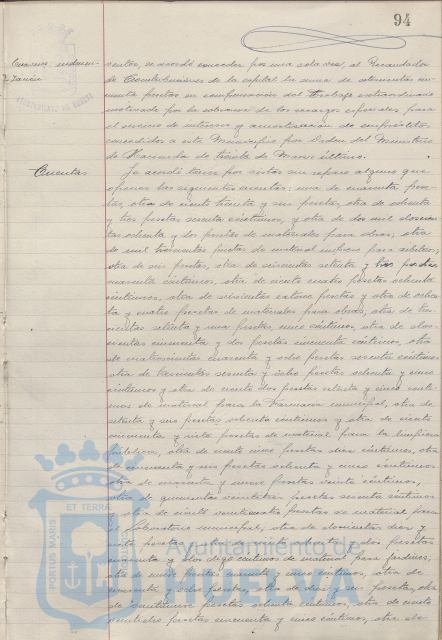 94
ventos, se acordó conceder por una sola vez, al Recaudador
de Contribuciones de la capital la suma de
pesetas en compensación del trabajo extraordinario
motivado por la cobranza de los recargos especiales para
el servicio de intereses y amortización de empréstitos
concedidos a este Municipio por Orden del Ministerio
de Hacienda de treinta de Marzo último.
Cuentas
Se acordó
las siguientes cuentas: una de cuarenta pese-
tas, otra de ciento treinta y seis pesetas, otra de ochenta
y tres pesetas sesenta céntimos, y otra de dos mil doscien-
tas ochenta y dos pesetas de materiales para obras; otra
de mil trescientas pesetas de material impreso para arbitrios;
otra de seis pesetas, otra de seiscientas setenta y tres pesetas
cuarenta céntimos, otra de ciento cuatro pesetas ochenta
céntimos, otra de seiscientas catorce pesetas y otra de ochen-
ta y cuatro pesetas de materiales para obras; otra de tres-
cientas setenta y una pesetas, cinco céntimos, otra de dos-
cientas cincuenta y dos pesetas cincuenta céntimos, otra
de cuatrocientas cuarenta y ocho pesetas sesenta céntimos,
otra de trescientas sesenta y ocho pesetas ochenta y cinco
céntimos y otra de ciento dos pesetas setenta y cinco cénti-
mos de material para la Farmacia municipal, otra de
setenta y seis pesetas ochenta céntimos y otra de ciento
cincuenta y siete pesetas de material para la limpieza
pública, otra de ciento once pesetas diez céntimos, otra
de cincuenta y seis pesetas ochenta y cinco céntimos
otra de cuarenta y nueve pesetas veinte céntimos,
otra de quinientas veintidós pesetas sesenta céntimos
y otra de ciento veinticuatro pesetas de material para
el Laboratorio municipal, otra de doscientas diez y
siete pesetas y otra de ciento ochenta y dos pesetas
cuarenta y dos céntimos de material para jardines;
otra de nueve pesetas cuarenta y cinco céntimos, otra de
cuarenta y ocho pesetas, otra de diez y seis pesetas, otra
de veintinueve pesetas ochenta céntimos, otra de ciento
veintiocho pesetas cincuenta y cinco céntimos, otra de
ET TERRÆ
PORTUS MARIS
Ayuntamiento de
HUELVA